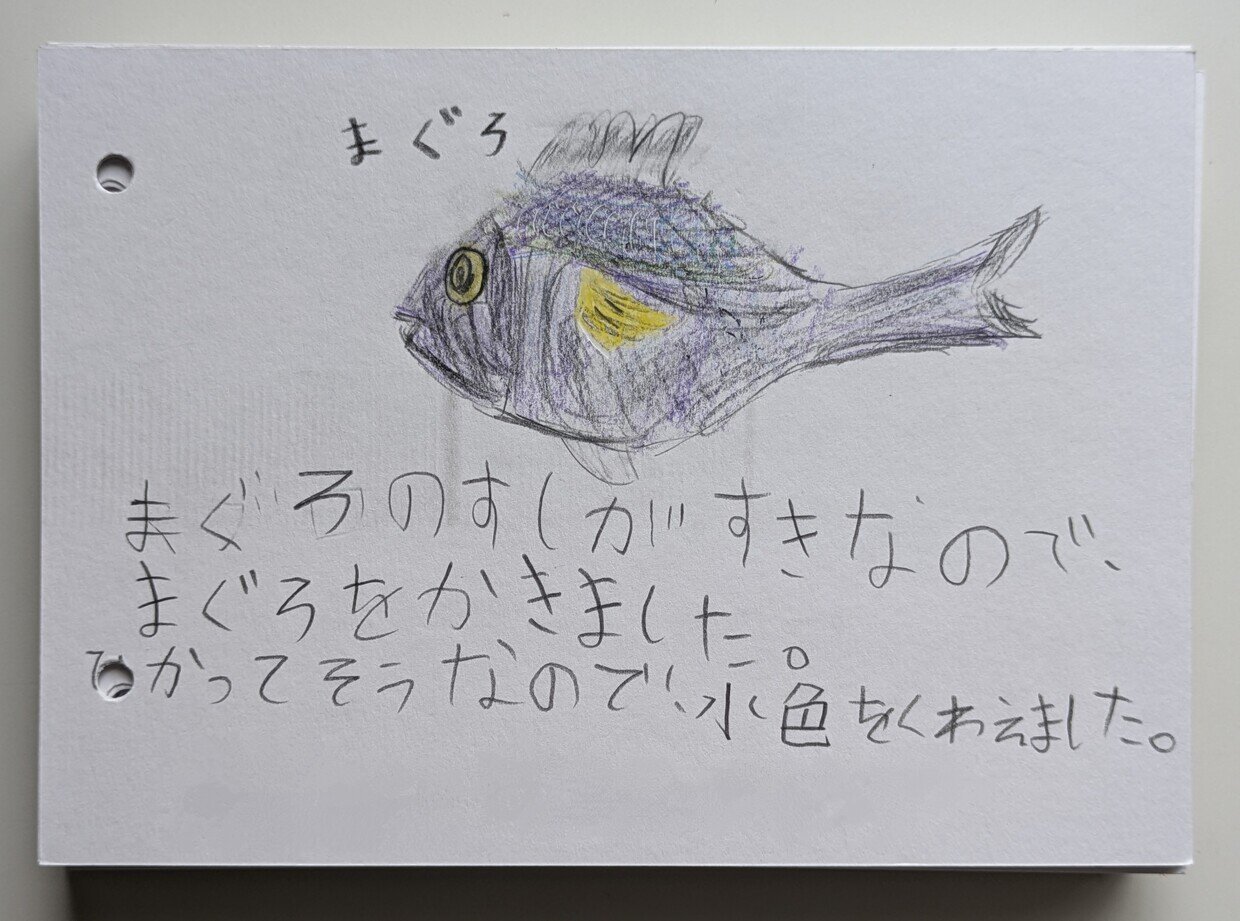 まぐろ
まぐろのすしがすきなので、
まぐろをかきました。
ひかってそうなので、水色をくわえました。